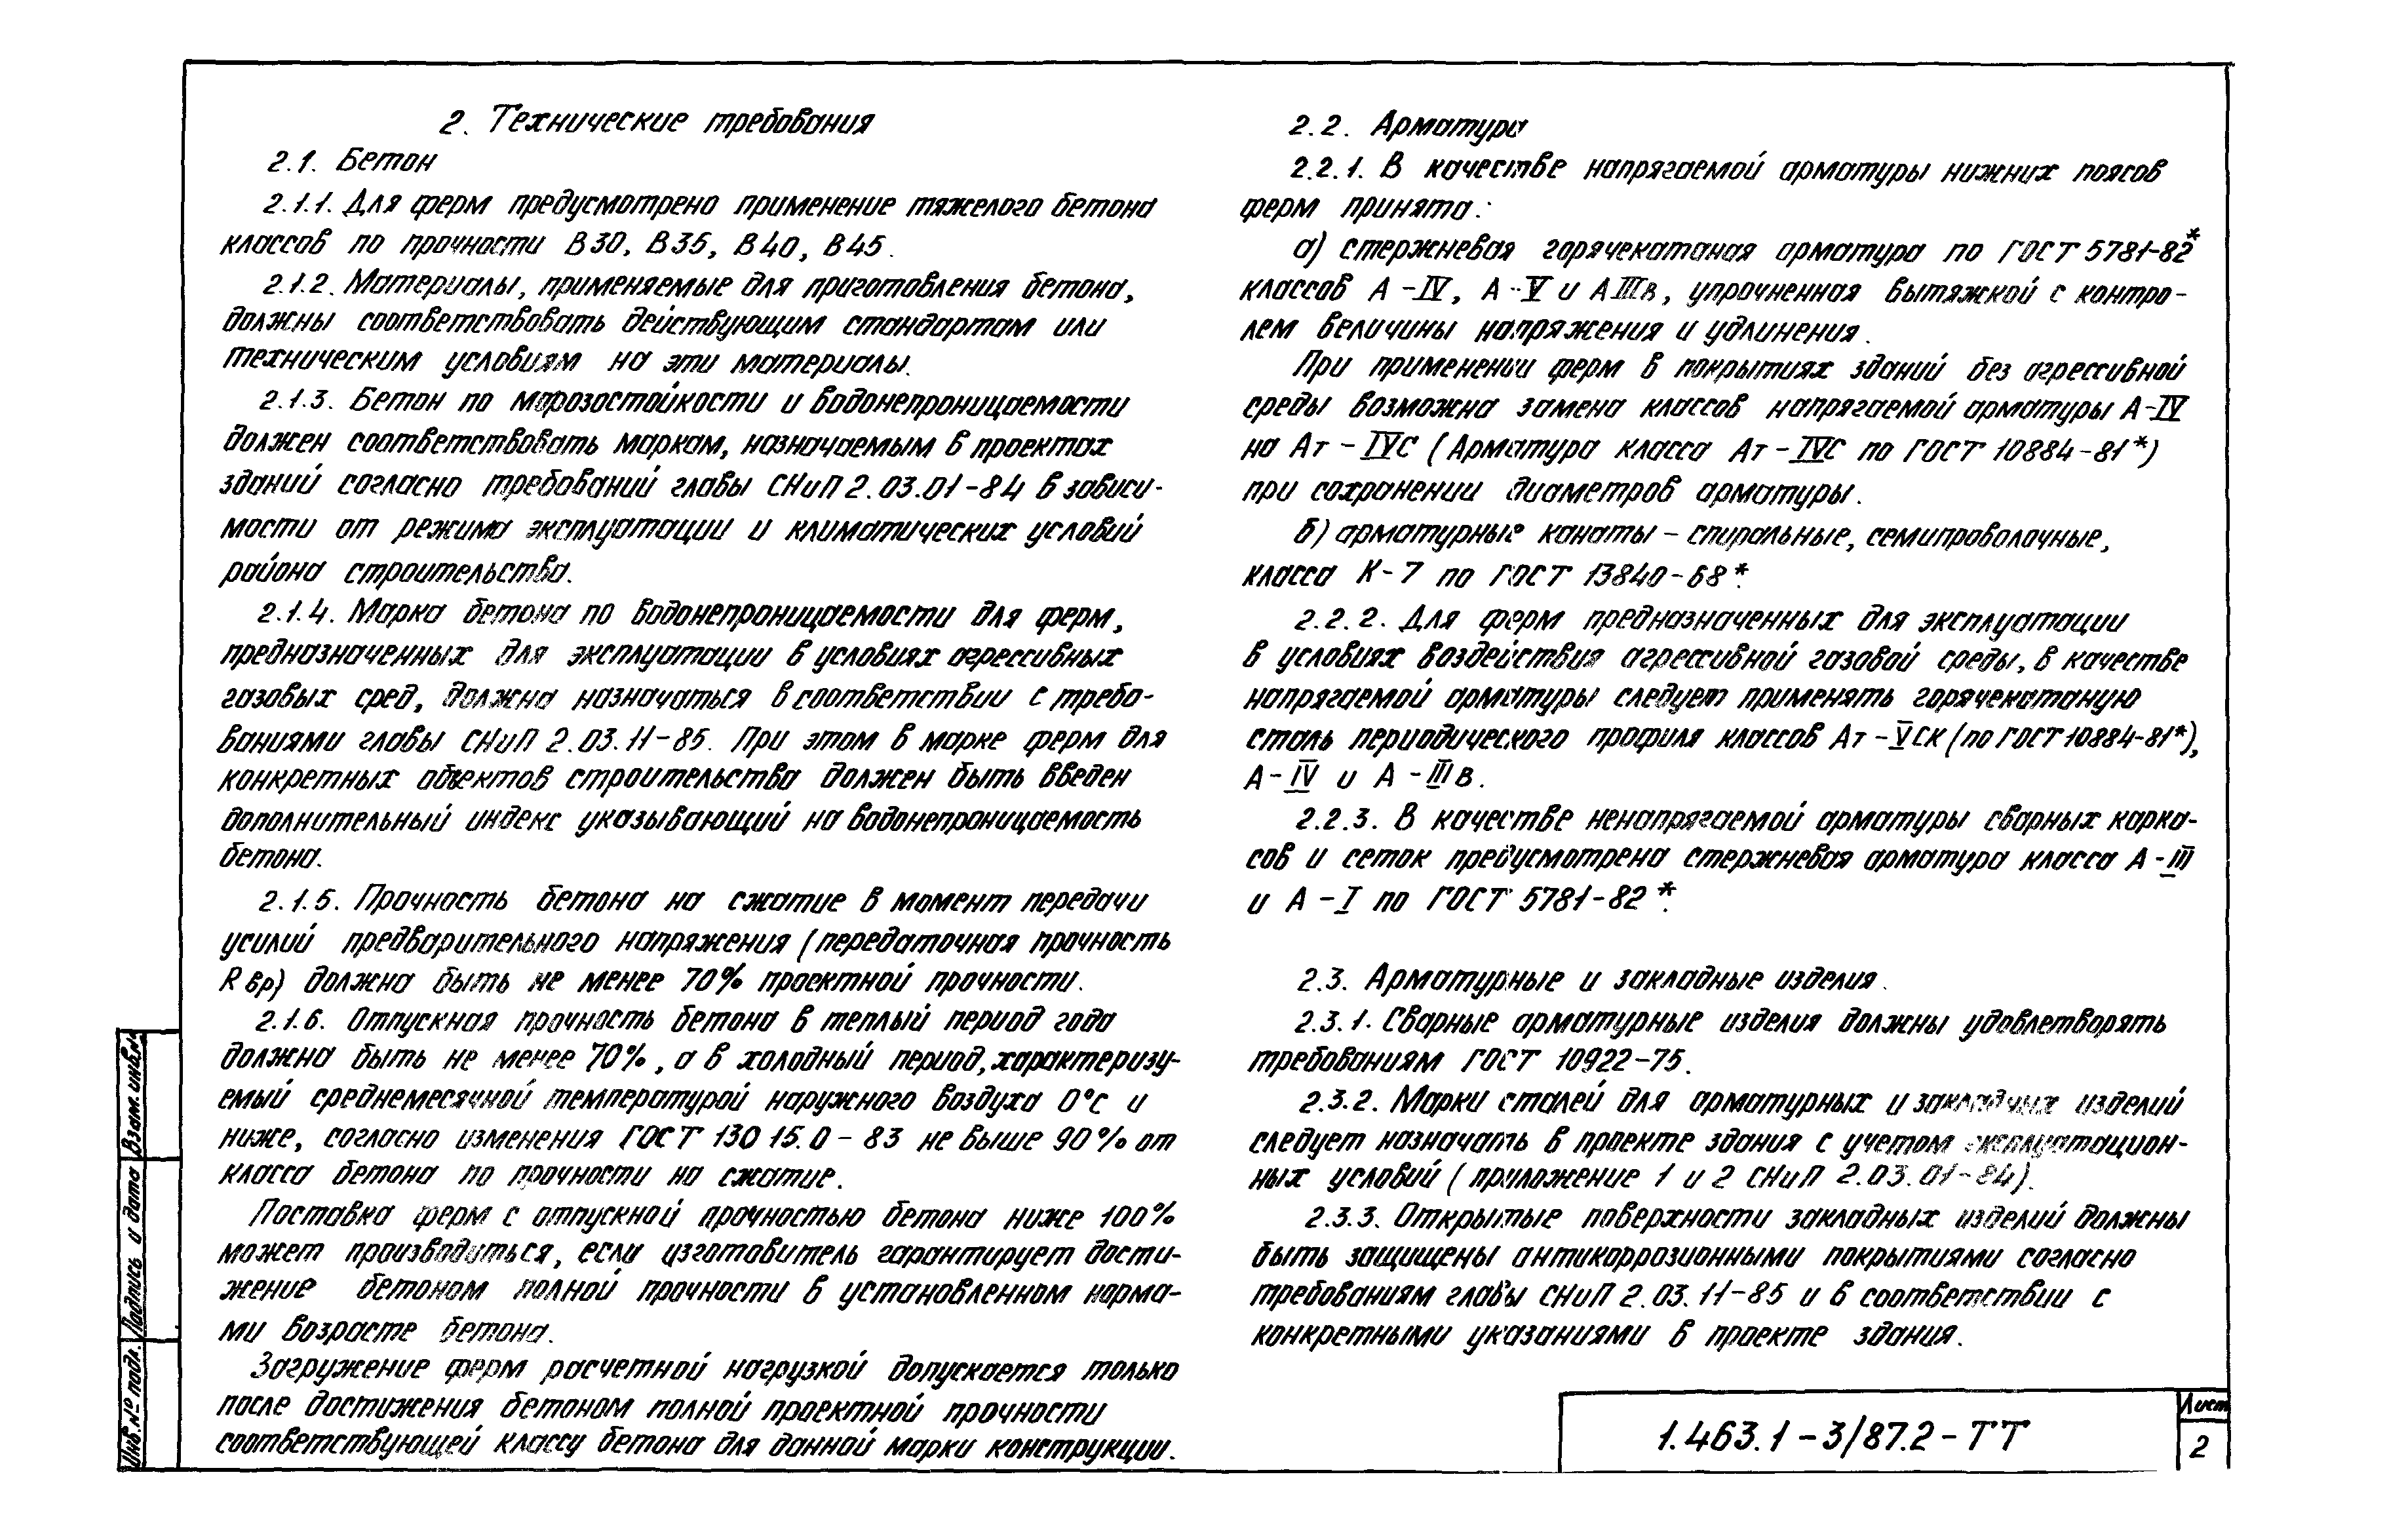 2. Технические требования
2.1. Бетон
2.1.1. Для ферм предусмотрено применение тяжелого бетона
классов по прочности В30, В35, В40, В45.
2.1.2. Материалы, применяемые для приготовления бетона,
должны соответствовать действующим стандартам или
техническим условиям на эти материалы.
2.1.3. Бетон по морозостойкости и водонепроницаемости
должен соответствовать маркам, назначаемым в проектах
зданий согласно требований главы СНиП 2.03.01-84 в зависи-
мости от режима эксплуатации и климатических условий
района строительства.
2.1.4. Марка бетона по водонепроницаемости для ферм,
предназначенных для эксплуатации в условиях агрессивных
газовых сред, должна назначаться в соответствии с требо-
ваниями главы СНиП 2.03.11-85. При этом в марке ферм для
конкретных объектов строительства должен быть введен
дополнительный индекс указывающий на водонепроницаемость
бетона.
2.1.5. Прочность бетона на сжатие в момент передачи
усилий предварительного напряжения (передаточная прочность
Rвр) должна быть не менее 70% проектной прочности.
2.1.6. Отпускная прочность бетона в теплый период года
должна быть не менее 70%, а в холодный период, характеризу-
емый среднемесячной температурой наружного воздуха 0°с и
ниже, согласно изменения ГОСТ 13015.0-83 не выше 90% от
класса бетона по прочности на сжатие.
Поставка ферм с отпускной прочностью бетона ниже 100%
может производиться, если изготовитель гарантирует дости-
жение бетоном полной прочности в установленном норма-
ми возрасте бетона.
Загружение ферм расчетной нагрузкой допускается только
после достижения бетоном полной проектной прочности
соответствующей классу бетона для данной марки конструкции.
2.2. Арматура
2.2.1. В качестве напрягаемой арматуры нижних поясов
ферм принята:
а) стержневая горячекатаная арматура по ГОСТ 5781-82*
классов А-IV, А-V и АIIIв, упрочненная вытяжкой с контро-
лем величины напряжения и удлинения.
При применении ферм в покрытиях зданий без агрессивной
среды возможна замена классов напрягаемой арматуры А-IV
на Ат-IVС (Арматура класса Ат-IVС по ГОСТ 10884-81*)
при сохранении диаметров арматуры.
б) арматурные канаты - спиральные, семипроволочные,
класса К-7 по ГОСТ 13840-68*.
2.2.2. Для ферм предназначенных для эксплуатации
в условиях воздействия агрессивной газовой среды, в качестве
напрягаемой арматуры следует применять горячекатаную
сталь периодического профиля классов Ат-VСК (по ГОСТ 10884-81*),
А-IV и А-IIIв.
2.2.3. В качестве ненапрягаемой арматуры сварных карка-
сов и сеток предусмотрена стержневая арматура класса А-III
и А-I по ГОСТ 5781-82*.
2.3. Арматурные и закладные изделия.
2.3.1. Сварные арматурные изделия должны удовлетворять
требованиям ГОСТ 10922-75.
2.3.2. Марки сталей для арматурных и закладных изделий
следует назначать в проекте здания с учетом эксплуатацион-
ных условий (приложение 1 и 2 СНиП 2.03.01-84).
2.3.3. Открытые поверхности закладных изделий должны
быть защищены антикоррозионными покрытиями согласно
требованиям главы СНиП 2.03.11-85 и в соответствии с
конкретными указаниями в проекте здания.
Взам. инв.№
Подпись и дата
Инв.№ подл.
1.463.1-3/87.2-ТТ
Лист
2